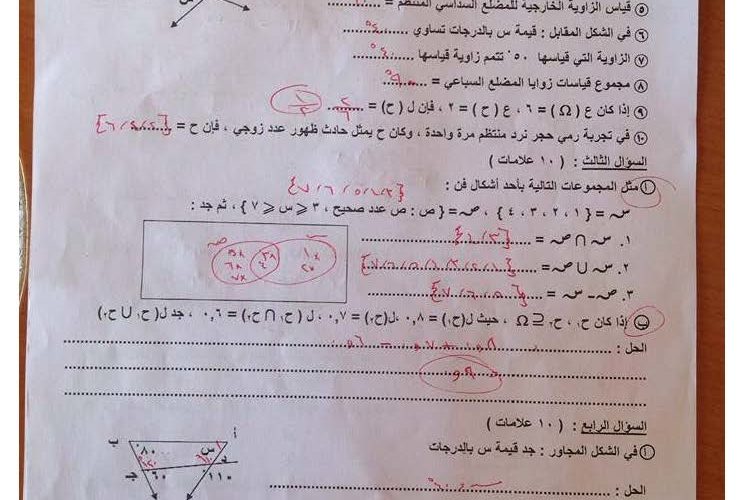 ⑤ قياس الزاوية الخارجية للمضلع السداسي المنتظم = ..........
⑥ في الشكل المقابل : قيمة س بالدرجات تساوي ..........
⑦ الزاوية التي قياسها ٥٠° تتمم زاوية قياسها ..........
⑧ مجموع قياسات زوايا المضلع السباعي = ..........
⑨ إذا كان ع ( Ω ) = ٦ ، ع ( ح ) = ٢ ، فإن ل ( ح) = ٢/٦
⑩ في تجربة رمي حجر نرد منتظم مرة واحدة ، وكان ح يمثل حادث ظهور عدد زوجي ، فإن ح = {٢،٤،٦}
السؤال الثالث : ( ١٠ علامات )
أ) مثل المجموعات التالية بأحد أشكال فن : {٣،٤،٥،٦،٧}
س = { ١ ، ٢ ، ٣ ، ٤ } ، ص = { ص : ص عدد صحيح ، ٣ ⩽ س ⩽ ٧ } ، ثم جد :
١. س ∩ ص = {٣،٤}
٢. س ∪ ص = {١،٢،٣،٤،٥،٦،٧}
٣. ص – س = {٥،٦،٧}
ص س
٥x ٣x ١x
٦x ٤x ٢x
٧x
ب) إذا كان ح١ ، ح٢ ⊆ Ω ، حيث ل(ح١) = ٠,٨ ، ل(ح٢) = ٠,٧ ، ل ( ح١ ∩ ح٢) = ٠,٦ ، جد ل( ح١ ∪ ح٢)
الحل : ٠,٨ + ٠,٧ – ٠,٦
٠,٩
السؤال الرابع : ( ١٠ علامات )
أ) في الشكل المجاور : جد قيمة س بالدرجات
ب أ
٨٠ س
٦٠ ١١٠
الحل :